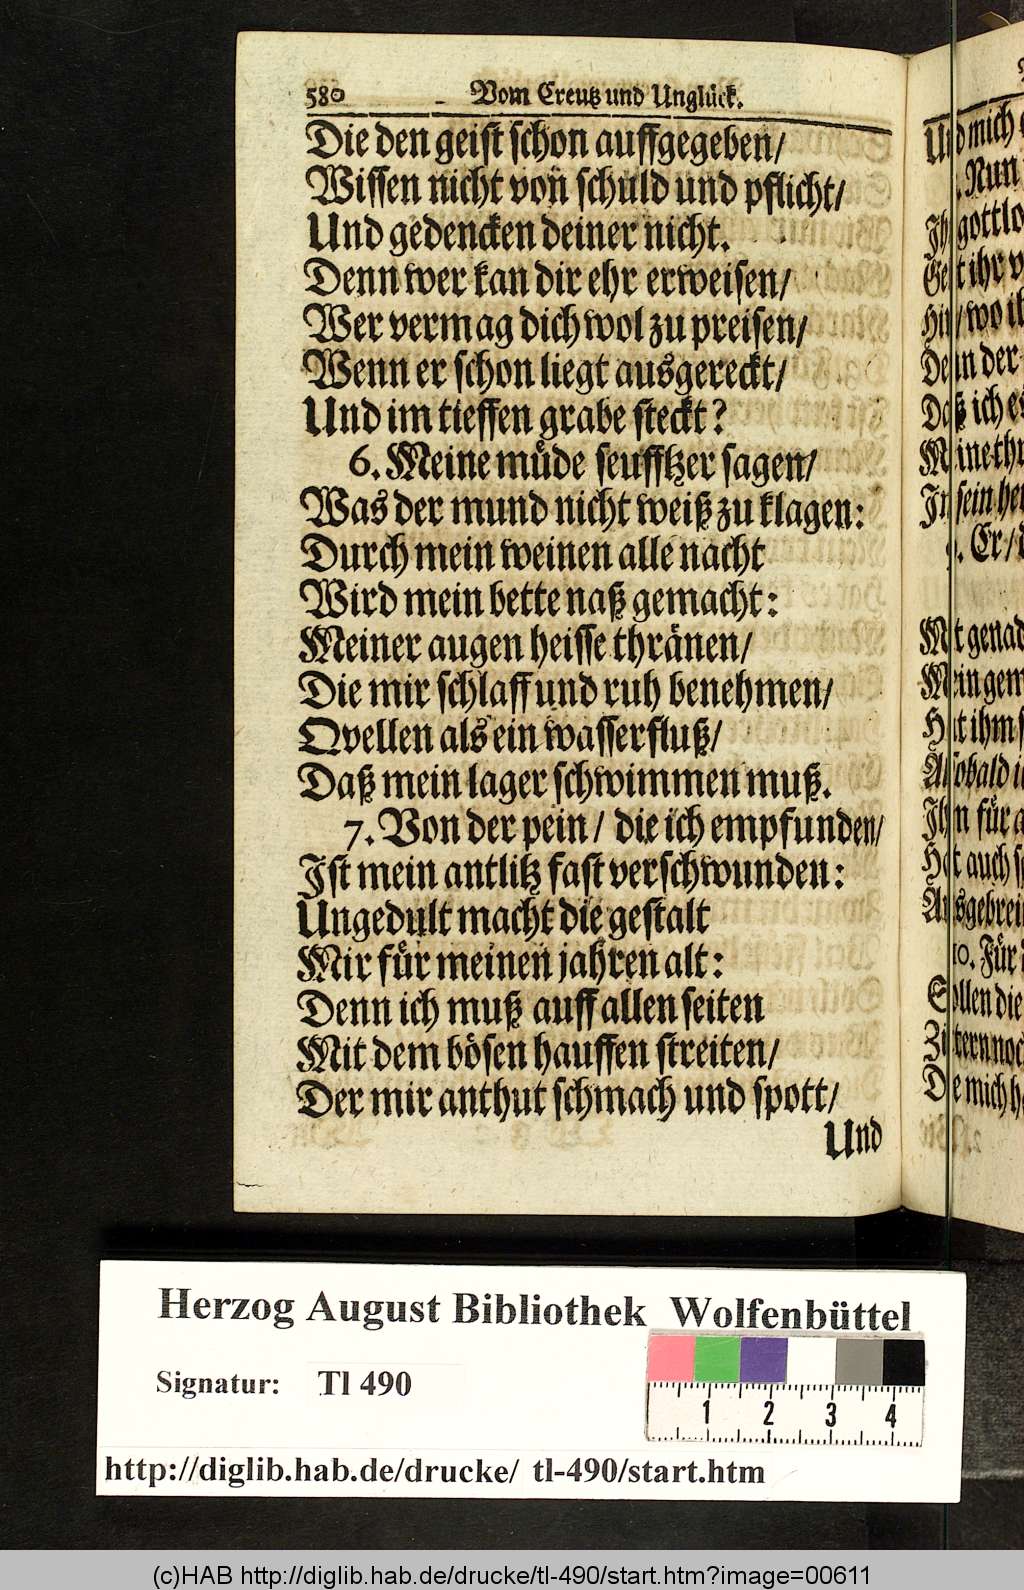 580 Vom Creutz und Unglück.
Die den geist schon auffgegeben/
Wissen nicht von schuld und pflicht/
Und gedencken deiner nicht.
Denn wer kan dir ehr erweisen/
Wer vermag dich wol zu preisen/
Wenn er schon liegt ausgereckt/
Und im tieffen grabe steckt?
6. Meine müde seufftzer sagen/
Was der mund nicht weiß zu klagen:
Durch mein weinen alle nacht
Wird mein bette naß gemacht:
Meiner augen heisse thränen/
Die mir schlaff und ruh benehmen/
Qvellen als ein wasserfluß/
Daß mein lager schwimmen muß.
7. Von der pein/ die ich empfunden/
Ist mein antlitz fast verschwunden:
Ungedult macht die gestalt
Mir für meinen jahren alt:
Denn ich muß auff allen seiten
Mit dem bösen hauffen streiten/
Der mir anthut schmach und spott/
Und
Und mich
Nun
gottlo
ihr
wo
Denn der
Daß ich
Meine
In sein
9. Er/
Mit
Mein
Hat ihm
Alsobald
Ihn für
Hat auch
10. Für
Sollen die
Die mich
Herzog August Bibliothek Wolfenbüttel
Signatur: Tl 490
1 2 3 4
http://diglib.hab.de/drucke/ tl-490/start.htm
(c)HAB http://diglib.hab.de/drucke/tl-490/start.htm?image=00611